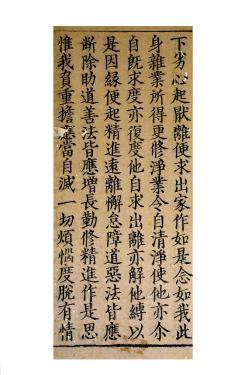 下劣心起猒離便求出家作如是念如我此
身雜業所得更修淨業令自清淨使他亦尒
自旣求度亦復度他自求出離亦解他縛以
是因緣便起精進遠離懈怠障道惡法皆應
斷除助道善法皆應增長勤修精進作是思
惟我負重擔應當自滅一切煩惱度脫有情